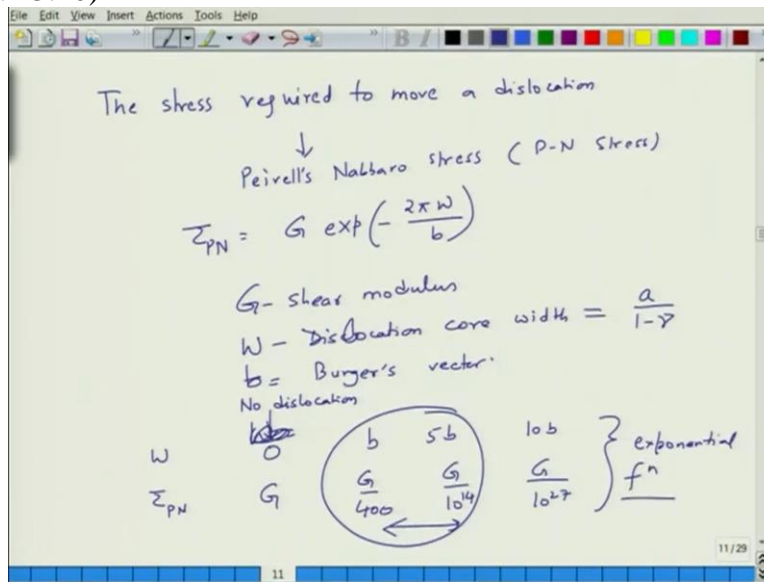 File Edit View Insert Actions Tools Help
The stress required to move a dislocation
↓
Peirell's Nabbaro stress (P-N stress)
τPN = G exp(- 2πW/b)
G- shear modulus
W - Dislocation core width = a/1-ν
b = Burger's vector.
No dislocation
W 0 b 5b 10b } exponential
τPN G G/400 G/10^14 G/10^27 f^n
11/29
11